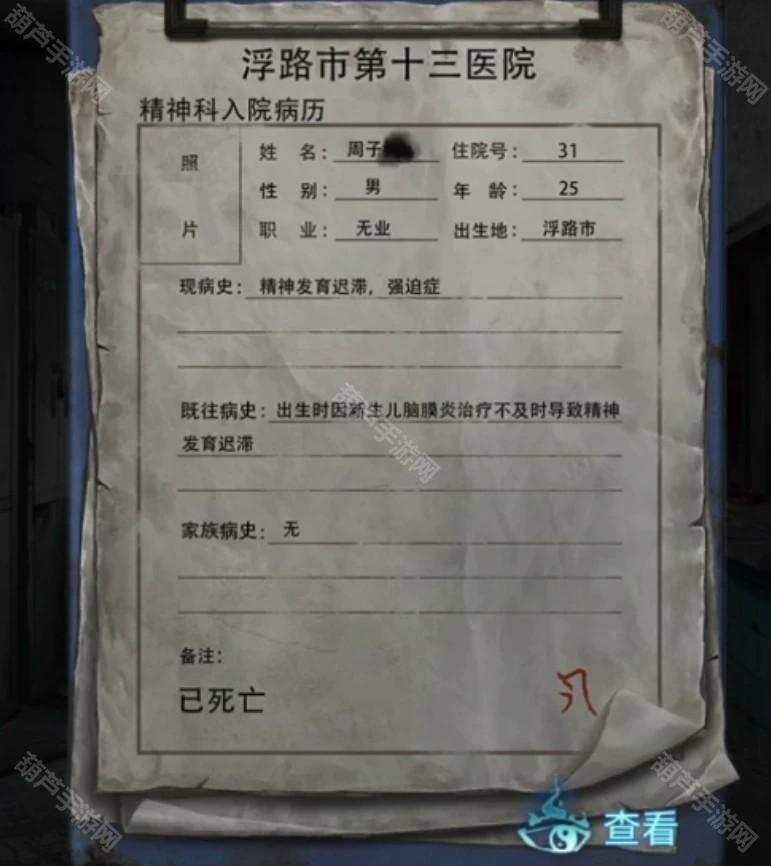 浮路市第十三医院
精神科入院病历
照片
姓 名： 周子 住院号： 31
性 别： 男 年 龄： 25
职 业： 无业 出生地： 浮路市
现病史： 精神发育迟滞，强迫症
既往病史：出生时因新生儿脑膜炎治疗不及时导致精神
发育迟滞
家族病史： 无
备注：
已死亡
查看
葫芦手游网
葫芦手游网
葫芦手游网
葫芦手游网
葫芦手游网